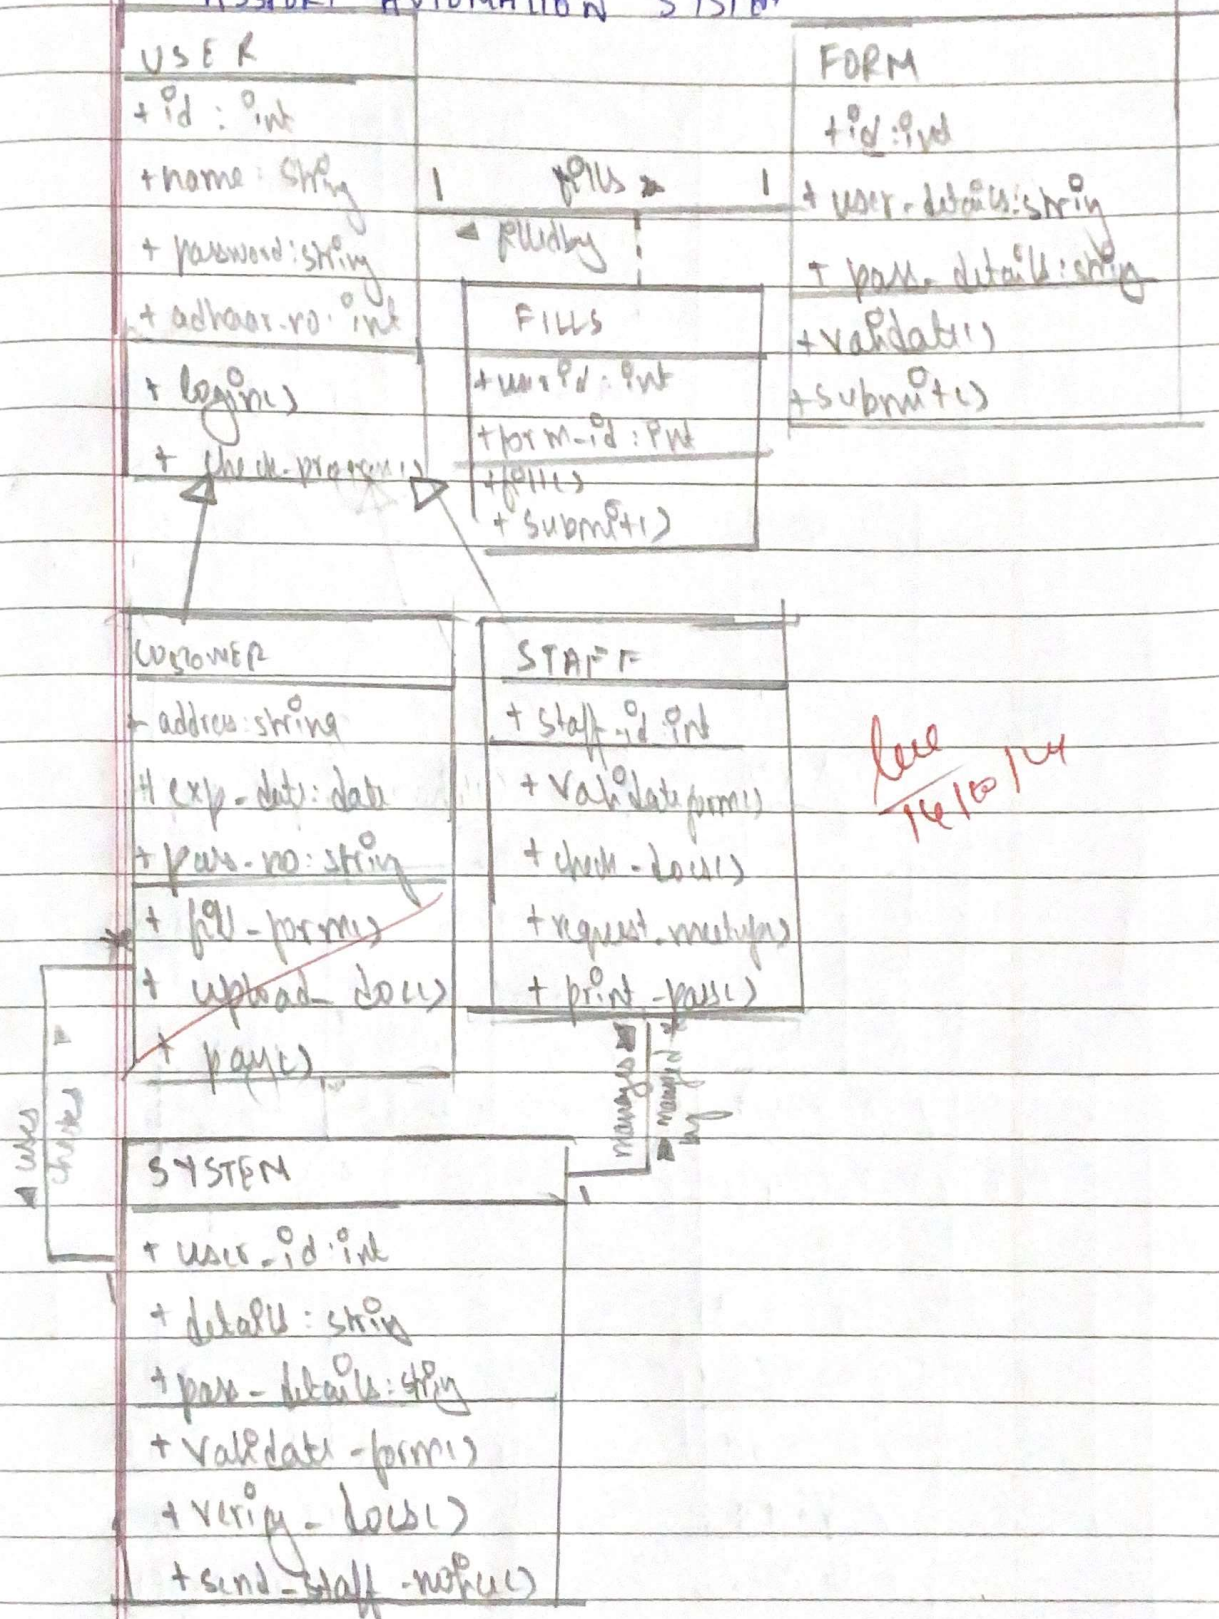 ASSPORT AUTOMATION SYSTEM
USER
+ id : int
+ name : string
+ password : string
+ adhaar-no : int
+ login()
+ check-progress()
1 fills 1
filledby
FORM
+ id : int
+ user-details : string
+ pass-details : string
+ validate()
+ submit()
FILLS
+ userid : int
+ form-id : int
+ fill()
+ submit()
CUSTOMER
- address : string
+ exp-date : date
+ pass-no : string
+ fill-form()
+ upload-doc()
+ pay()
STAFF
+ staff-id : int
+ validateform()
+ check-docs()
+ request-meetup()
+ print-pass()
*
uses
manages
managed
by
*
1
1
SYSTEM
+ user-id : int
+ details : string
+ pass-details : string
+ validate-form()
+ verify-docs()
+ send-staff-notice()